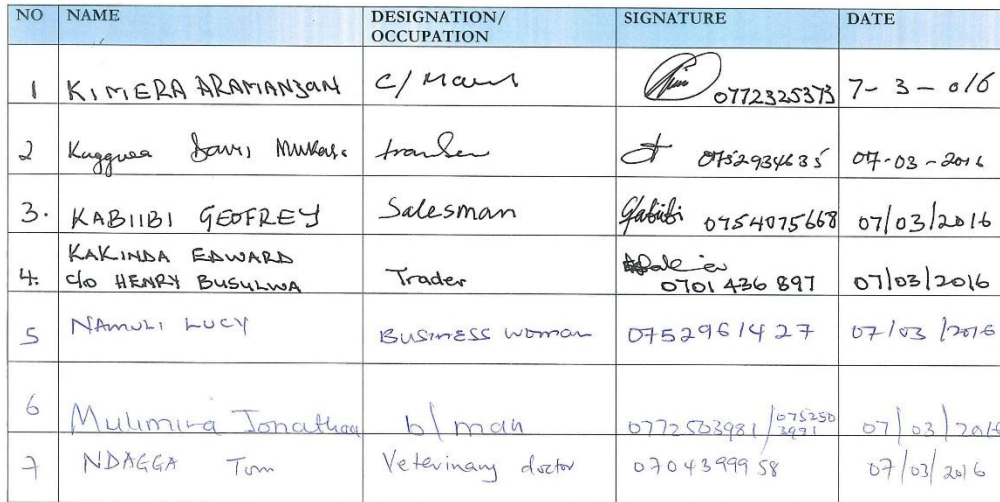 NO NAME DESIGNATION/ SIGNATURE DATE
OCCUPATION
1 KIMERA ARAMANZAN C/ 0772325373 7- 3 - 016
2 0752934635 07-03-2016
3. KABIIBI GEOFREY Salesman Gabiibi 0754075668 07/03/2016
KAKINDA EDWARD
4. c/o HENRY BUSULWA Trader 0701 436 897 07/03/2016
5 NAMULI LUCY BUSINESS WOMAN 0752961427 07/03/2016
6 Mulimira Jonathan b/man 0772503981/0752503971 07/03/2016
7 NDAGGA Tom Veterinary doctor 0704399958 07/03/2016